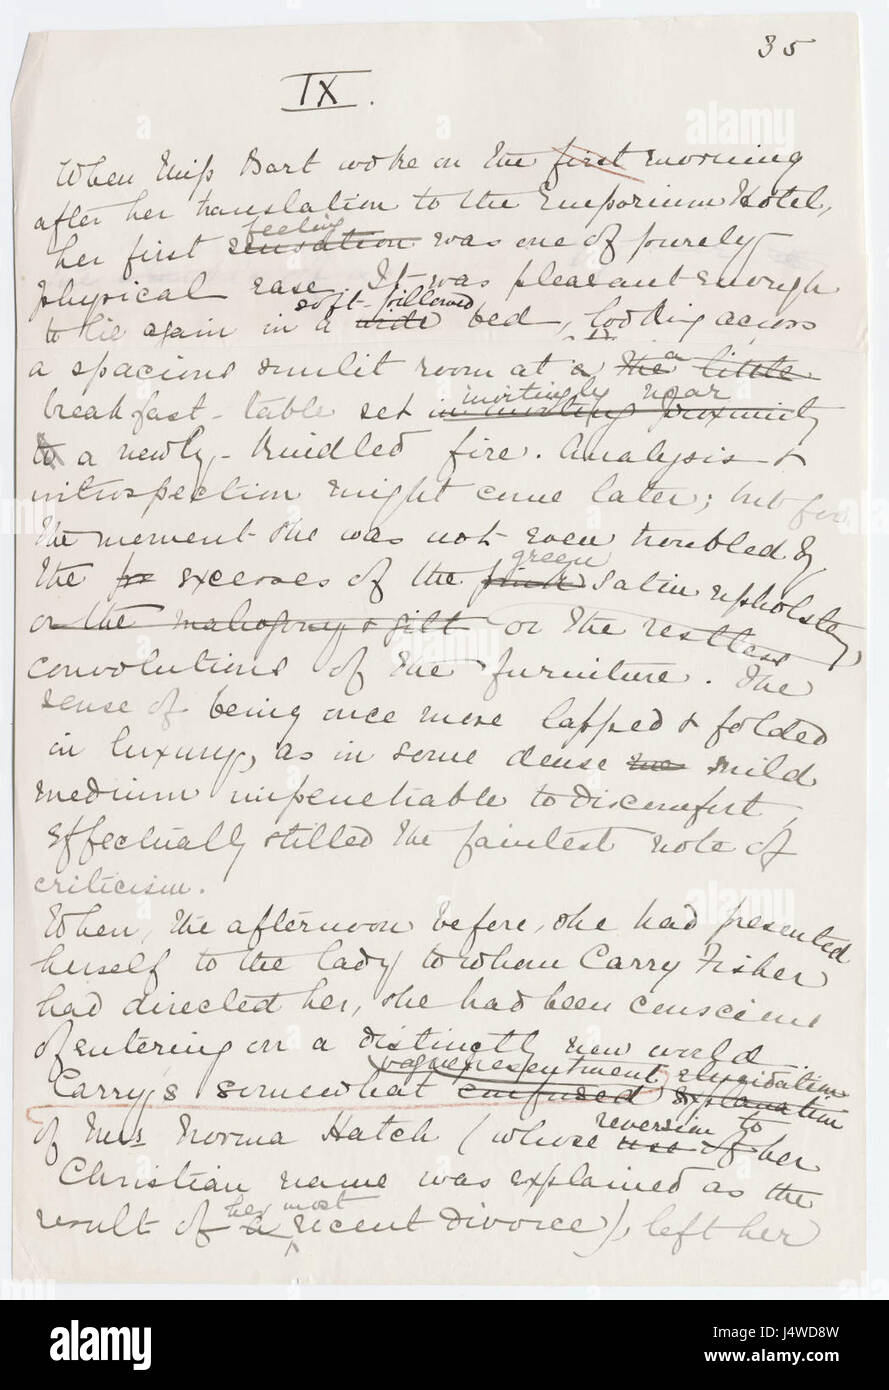 35
IX.
When Miss Bart woke on the first morning
after her translation to the Emporium Hotel,
feeling
her first sensation was one of purely
physical ease. It was pleasant enough
soft-pillowed
to lie again in a wide bed, looking across
a spacious sunlit room at a the a little
invitingly near
breakfast-table set in inviting proximity
to a newly-kindled fire. Analysis &
introspection might come later; but for
the moment she was not even troubled by
green
the excesses of the pink satin upholstery,
or the mahogany & gilt or the restless
convolutions of the furniture. The
sense of being once more lapped & folded
in luxury, as in some dense mild
medium impenetrable to discomfort,
effectually stilled the faintest note of
criticism.
When, the afternoon before, she had presented
herself to the lady to whom Carry Fisher
had directed her, she had been conscious
of entering on a distinctly new world
vague presentment elucidation
Carry's somewhat confused explanation
reversion to
of Mrs Norma Hatch (whose use of her
Christian name was explained as the
her most
result of a recent divorce), left her
alamy
alamy
alamy
Image ID: J4WD8W
www.alamy.com